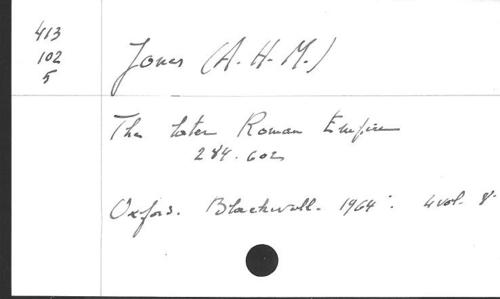 413
102
5
Jones (A. H. M.)
The later Roman Empire
284-602
Oxford. Blackwell. 1964. 4 vol. 8°